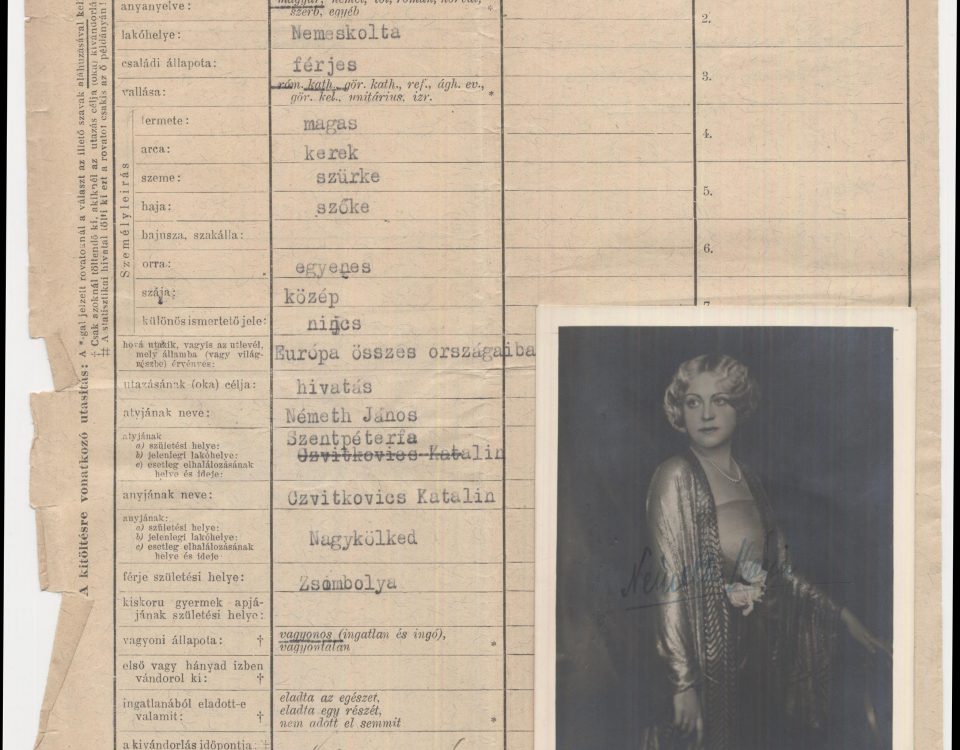 anyanyelve:
magyar, német, tót, román, horvát,
szerb, egyéb *
lakóhelye: Nemeskolta
családi állapota: férjes
vallása: róm. kath., gör. kath., ref., ágh. ev.,
gör. kel., unitárius, izr. *
Személyleírás
termete: magas
arca: kerek
szeme: szürke
haja: szőke
bajusza, szakálla:
orra: egyenes
szája: közép
különös ismertető jele: nincs
hová utazik, vagyis az útlevél,
mely államba (vagy világ-
részbe) érvényes: Európa összes országaiba
utazásának (oka) célja: hivatás
atyjának neve: Németh János
atyjának
a) születési helye: Szentpéterfa
b) jelenlegi lakóhelye: Czvitkovics Katalin
c) esetleg elhalálozásának
helye és ideje:
anyjának neve: Czvitkovics Katalin
anyjának:
a) születési helye:
b) jelenlegi lakóhelye: Nagykölked
c) esetleg elhalálozásának
helye és ideje
férje születési helye: Zsombolya
kiskoru gyermek apjá-
jának születési helye:
vagyoni állapota: † vagyonos (ingatlan és ingó),
vagyontalan *
első vagy hányad izben
vándorol ki: †
ingatlanából eladott-e
valamit: †
eladta az egészet,
eladta egy részét,
nem adott el semmit *
a kivándorlás időpontja: ‡
2.
3.
4.
5.
6.
7.
A kitöltésre vonatkozó utasítás: A *-gal jelzett rovatoknál a választ az illető szavak aláhuzásával kel
† Csak azoknál töltendő ki, akiknél az utazás célja (oka) kivándorlá
‡ A statisztikai hivatal tölti ki ezt a rovatot csakis az ő példányán!